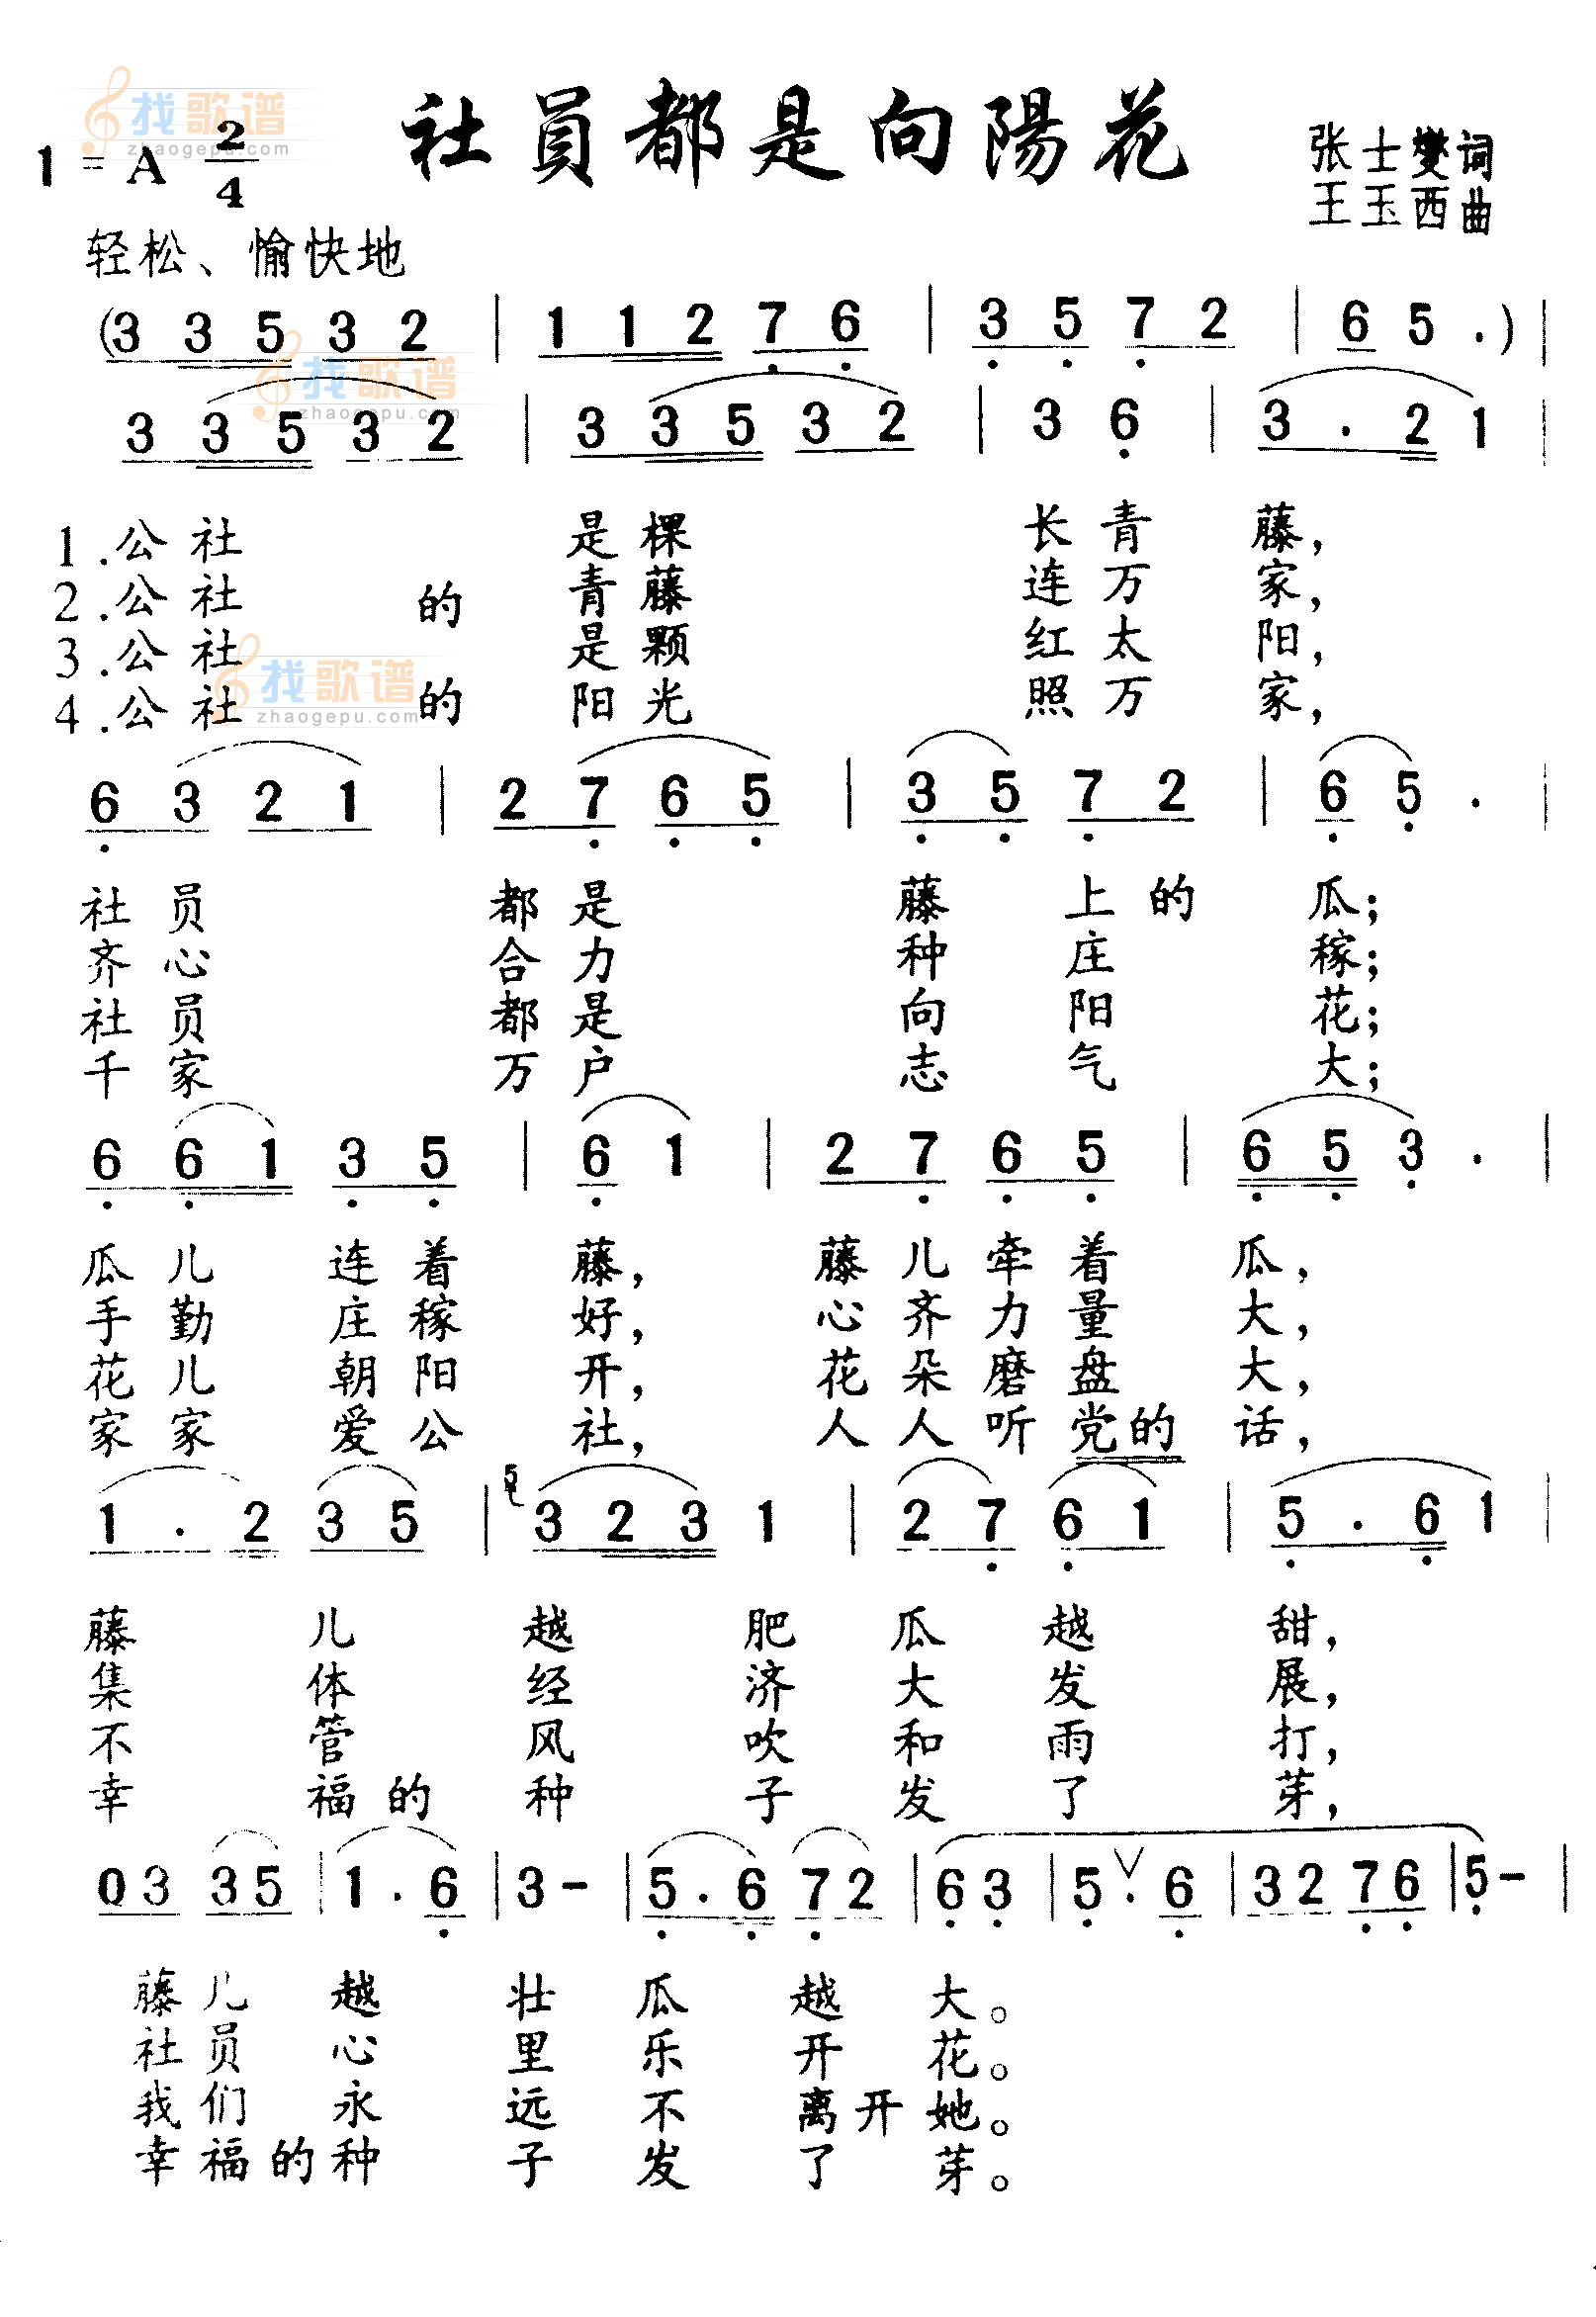 找歌谱
zhaogepu.com
社員都是向陽花
1=A 2/4
张士燮词
王玉西曲
轻松、愉快地
(3 3 5 3 2 | 1 1 2 7 6 | 3 5 7 2 | 6 5 . ) |
找歌谱
zhaogepu.com
3 3 5 3 2 | 3 3 5 3 2 | 3 6 | 3 . 2 1 |
1.公社 是棵 长青藤,
2.公社的青藤 连万家,
3.公社 是颗 红太阳,
4.公社的阳光 照万家,
找歌谱
zhaogepu.com
6 3 2 1 | 2 7 6 5 | 3 5 7 2 | 6 5 . |
社员 都是 藤上的瓜;
齐心 合力 种庄稼;
社员 都是 向阳花;
千家 万户 志气大;
6 6 1 3 5 | 6 1 | 2 7 6 5 | 6 5 3 . |
瓜儿连着藤, 藤儿牵着瓜,
手勤庄稼好, 心齐力量大,
花儿朝阳开, 花朵磨盘大,
家家爱公社, 人人听党的话,
1 . 2 3 5 | 5 3 2 3 1 | 2 7 6 1 | 5 . 6 1 |
藤儿越肥瓜越甜,
集体经济大发展,
不管风吹和雨打,
幸福的种子发了芽,
0 3 3 5 | 1 . 6 | 3 - | 5 . 6 7 2 | 6 3 | 5 V . 6 | 3 2 7 6 | 5 - |
藤儿越壮瓜越大。
社员心里乐开花。
我们永远不离开她。
幸福的种子发了芽。